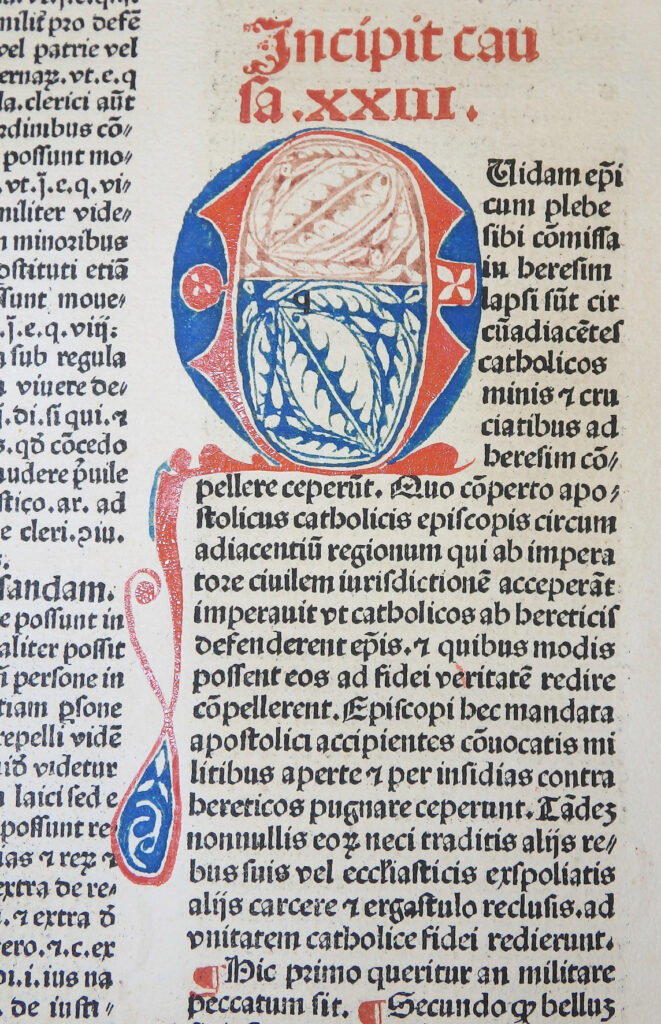 milit̃ pro defẽ
vel patrie vel
ernaꝝ. vt. e. q
la. clerici aũt
rdinibus cõ⸗
possunt mo⸗
. vt. j̃. e. q. vi⸗
militer vide⸗
n minoribus
ostituti etiã
ssunt moue⸗
. j̃. e. q. viij:
a sub regula
viuere de⸗
j. di. si qui. ⁊
s. qđ cõcedo
udere p̃uile
stico. ar. ad
e cleri.
s.
sandam.
e possunt in
aliter possit
persone in
tiam ꝑsone
repelli vidẽ
videtur
laici sed e
possunt re
uas ⁊ reꝝ ⁊
extra de re⸗
. ⁊ extra đ
ero. ⁊. c. ex
di. i. ius na
. de iusti⸗
Incipit cau
sa. XXIII.
q
Uidam ep̃i
cum plebe
sibi cõmissa
in heresim
lapsi sũt cir
cũadiacẽtes
catholicos
minis ⁊ cru
ciatibus ad
heresim cõ⸗
pellere ceperũt. Quo cõperto apo⸗
stolicus catholicis episcopis circum
adiacentiũ regionum qui ab impera
tore ciuilem iurisdictionẽ acceperãt
imperauit vt catholicos ab hereticis
defenderent ep̃is. ⁊ quibus modis
possent eos ad fidei veritatẽ redire
cõpellerent. Episcopi hec mandata
apostolici accipientes cõuocatis mi
litibus aperte ⁊ per insidias contra
hereticos pugnare ceperunt. Tãdeꝫ
nonnullis eoꝝ neci traditis alijs re⸗
bus suis vel ecclĩasticis exspoliatis
alijs carcere ⁊ ergastulo reclusis. ad
vnitatem catholice fidei redierunt.
¶ Hic primo queritur an militare
peccatum sit. ¶ Secundo ꝙ belluꝫ